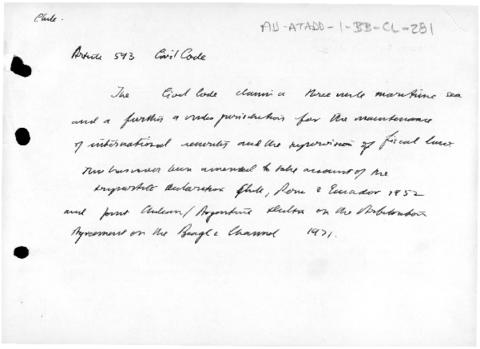 Chile.
AU-ATADD-1-BB-CL-281
Article 593 Civil Code
The Civil Code claims a three mile maritime sea
and a further jurisdiction for the maintenance
of international security and the supervision of fiscal laws
been amended to take account of the
tripartite declaration Chile, Peru & Ecuador 1952
and joint Chilean/Argentine on the Arbitration
Agreement on the Beagle Channel 1971.